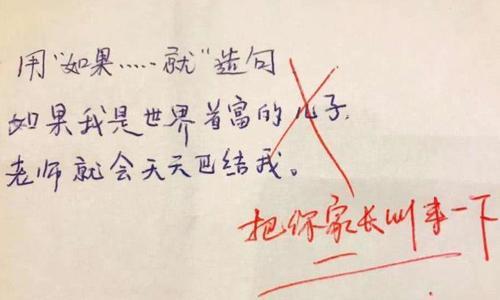 用"如果……就"造句
如果我是世界首富的儿子,
老师就会天天巴结我。
把你家长叫来一下